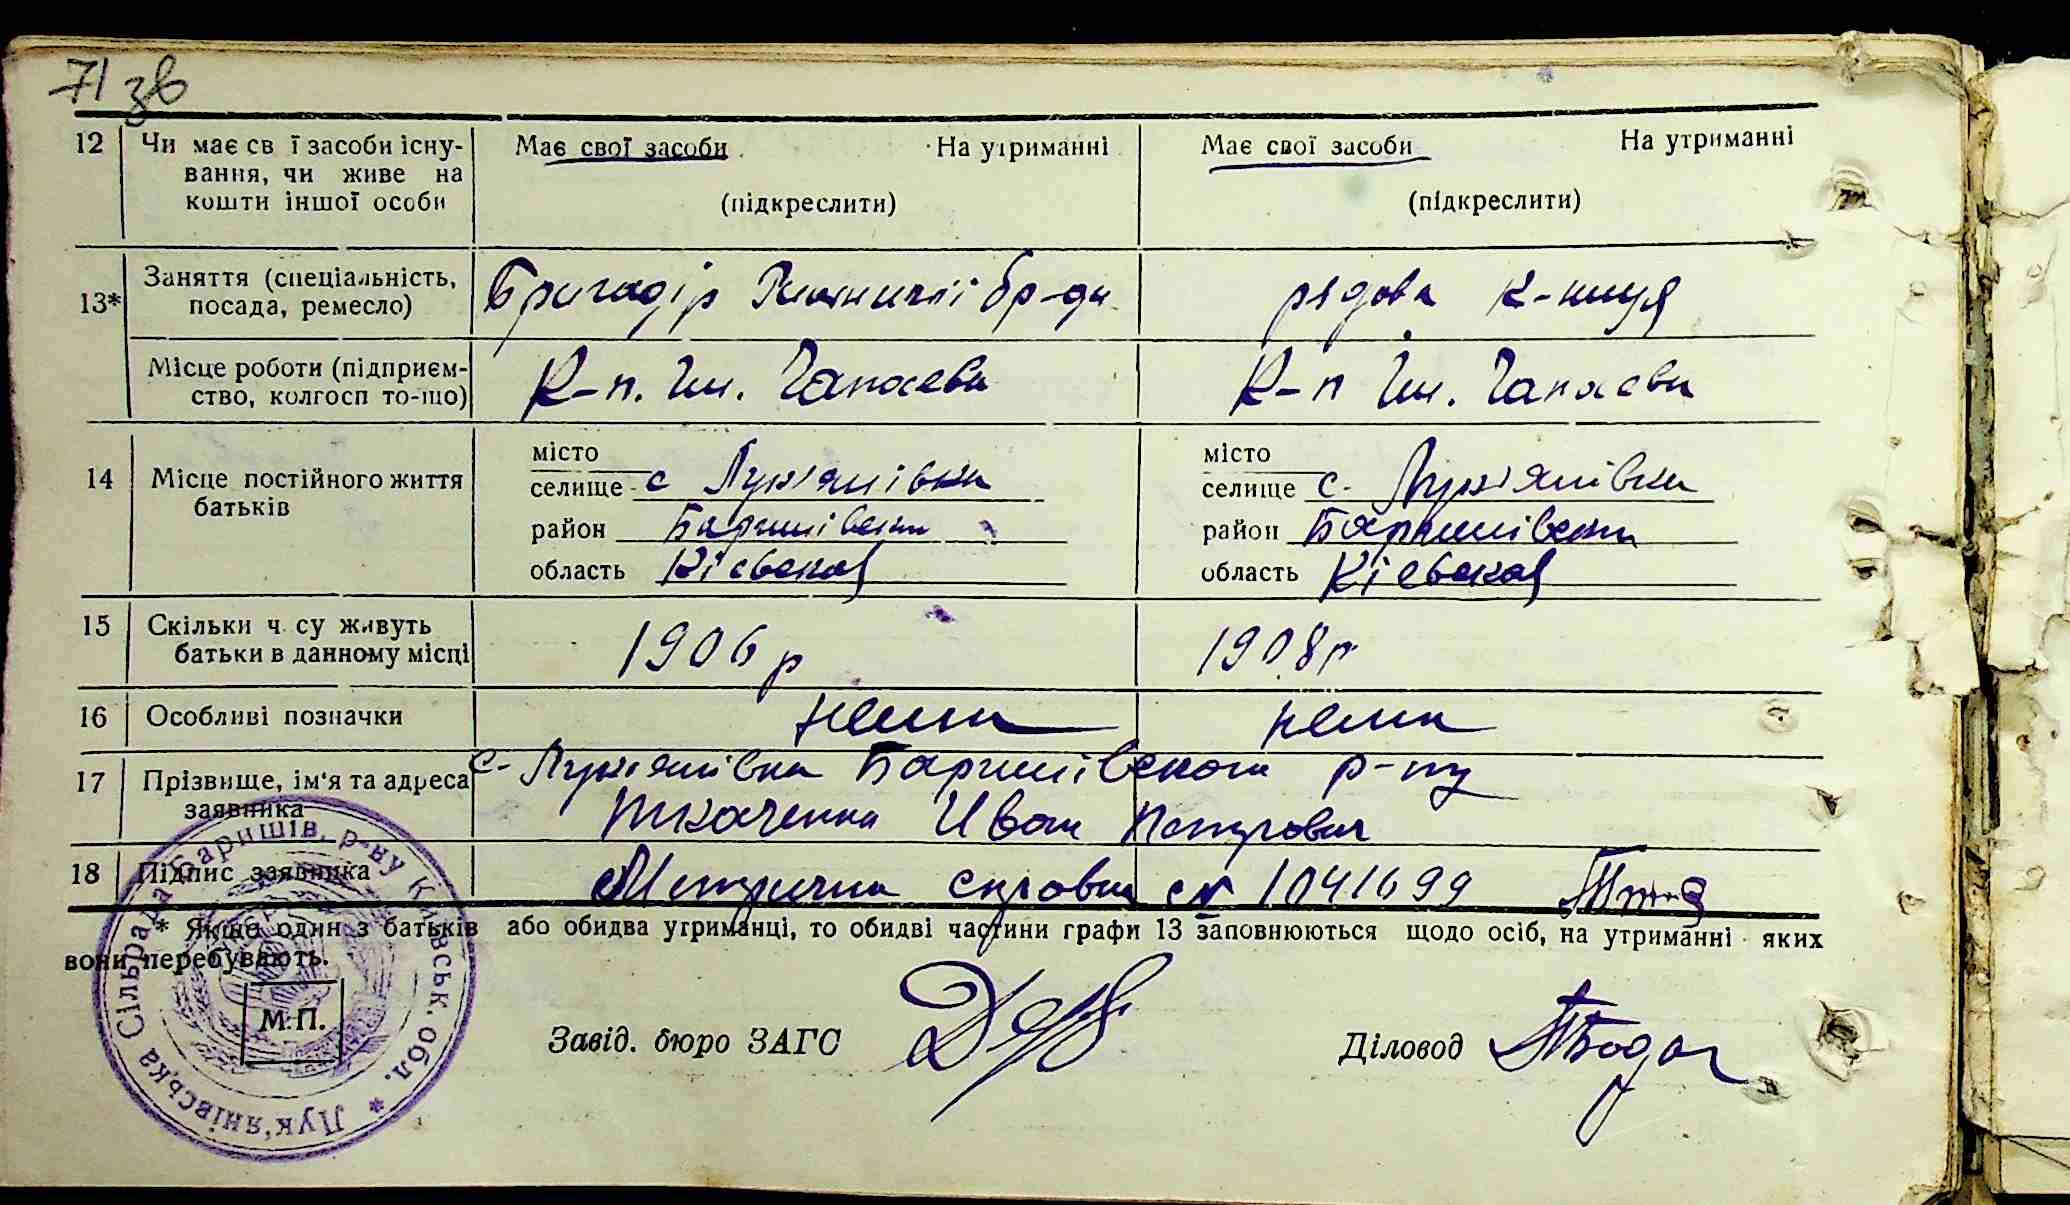 71 зв
12 Чи має св ї засоби існу- Має свої засоби На утриманні Має свої засоби На утриманні
вання, чи живе на
кошти іншої особи (підкреслити) (підкреслити)
13* Заняття (спеціальність, Бригадір бр-ди рядова к-ниця
посада, ремесло)
Місце роботи (підприєм- К-п. Ім. Чапаєва К-п Ім. Чапаєва
ство, колгосп то-що)
14 Місце постійного життя батьків
місто
селище с Лук'янівка
район Баришівськи
область Кієвская
місто
селище с. Лук'янівка
район Баришівськи
область Кієвская
15 Скільки ч су живуть 1906 р 1908 р
батьки в данному місці
16 Особливі позначки нема нема
17 Прізвище, ім'я та адреса с. Лук'янівка Баришівского р-ну
заявника Ткаченко Иван Петрович
18 Підпис заявника Метрична справка № 1041699
* Якщо один з батьків або обидва утриманці, то обидві частини графи 13 заповнюються щодо осіб, на утриманні яких
вони перебувають.
М.П.
Завід. бюро ЗАГС Діловод
Лук'янівська Сільрада Баришів. р-ну Київськ. обл. *